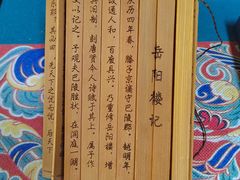 岳阳楼记
庆历四年春，滕子京谪守巴陵郡。越明年，
政通人和，百废具兴，乃重修岳阳楼，增
其旧制，刻唐贤今人诗赋于其上，属予作
文以记之。予观夫巴陵胜状，在洞庭一湖。
其必曰 先天下之忧而忧，后天下